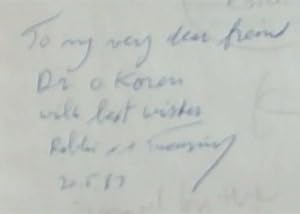 To my very dear freind
Dr a Koren
with best wishes
Rabbi
20.5.87